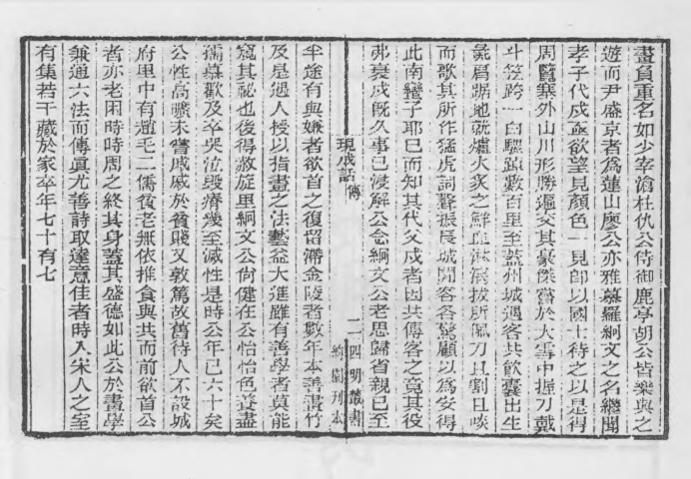 畫負重名如少宰滄柱仇公侍御鹿亭胡公皆樂與之
遊而尹盛京者爲蓮山廖公亦雅慕羅絅文之名繼聞
孝子代戍亟欲望見顏色一見即以國士待之以是得
周覽塞外山川形勝遍交其豪傑嘗於大雪中握刀戴
斗笠跨一白騾踔數百里至蓋州城遇客共飲囊出生
彘肩踞地就爐火炙之鮮血淋漓拔所佩刀且割且啖
而歌其所作猛虎詞聲振長城聞客各驚顧以爲安得
此南蠻子耶已而知其代父戍者因共傳客之竟其役
弗衰戍既久事已浸解公念絅文公老思歸省親已至
現成話 傳
二 四明叢書
約園刊本
半途有與嫌者欲首之復留滯金陵者數年本善畫竹
及是遇人授以指畫之法藝益大進雖有善學者莫能
窺其祕也後得赦旋里絅文公尙健在公怡怡色養盡
孺慕歡及卒哭泣毀瘠幾至滅性是時公年已六十矣
公性高曠未嘗戚戚於貧賤又敦篤故舊待人不設城
府里中有趙毛二儒貧老無依推食與共而前欲首公
者亦老困時時周之終其身蓋其盛德如此公於畫學
兼通六法而傳眞尤善詩取達意佳者時入宋人之室
有集若干藏於家卒年七十有七